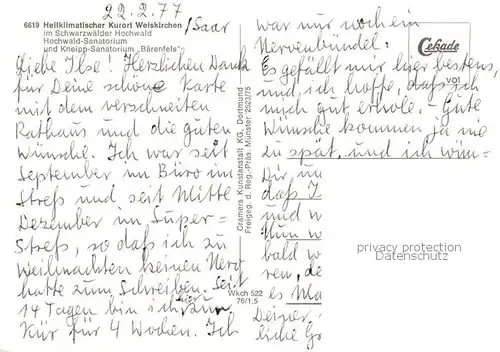 22.2.77
6619 Heilklimatischer Kurort Weiskirchen /Saar
im Schwarzwälder Hochwald
Hochwald-Sanatorium
und Kneipp-Sanatorium „Bärenfels"
Liebe Ilse! Herzlichen Dank
für Deine schöne Karte
mit dem verschneiten
Rathaus und die guten
Wünsche. Ich war seit
September im Büro im
Streß und seit Mitte
Dezember im Super-
Streß, so daß ich zu
Weihnachten keinen Nerv
hatte zum Schreiben. Seit
14 Tagen bin ich hier zur
Kur für 4 Wochen. Ich
Cramers Kunstanstalt KG, Dortmund
Freigeg. d. Reg.-Präs. Münster 2523/75
Wkch 522
76/1,5
war nur noch ein
Nervenbündel.
Es gefällt mir hier bestens,
und ich hoffe, daß ich
mich gut erhole. – Gute
Wünsche kommen ja nie
zu spät, und ich wün-
Dir, un
daß I
und w
Nun w
bald w
ren, de
es Ma
Deiner
liche Gr
Cekade
VOI
privacy protection
Datenschutz